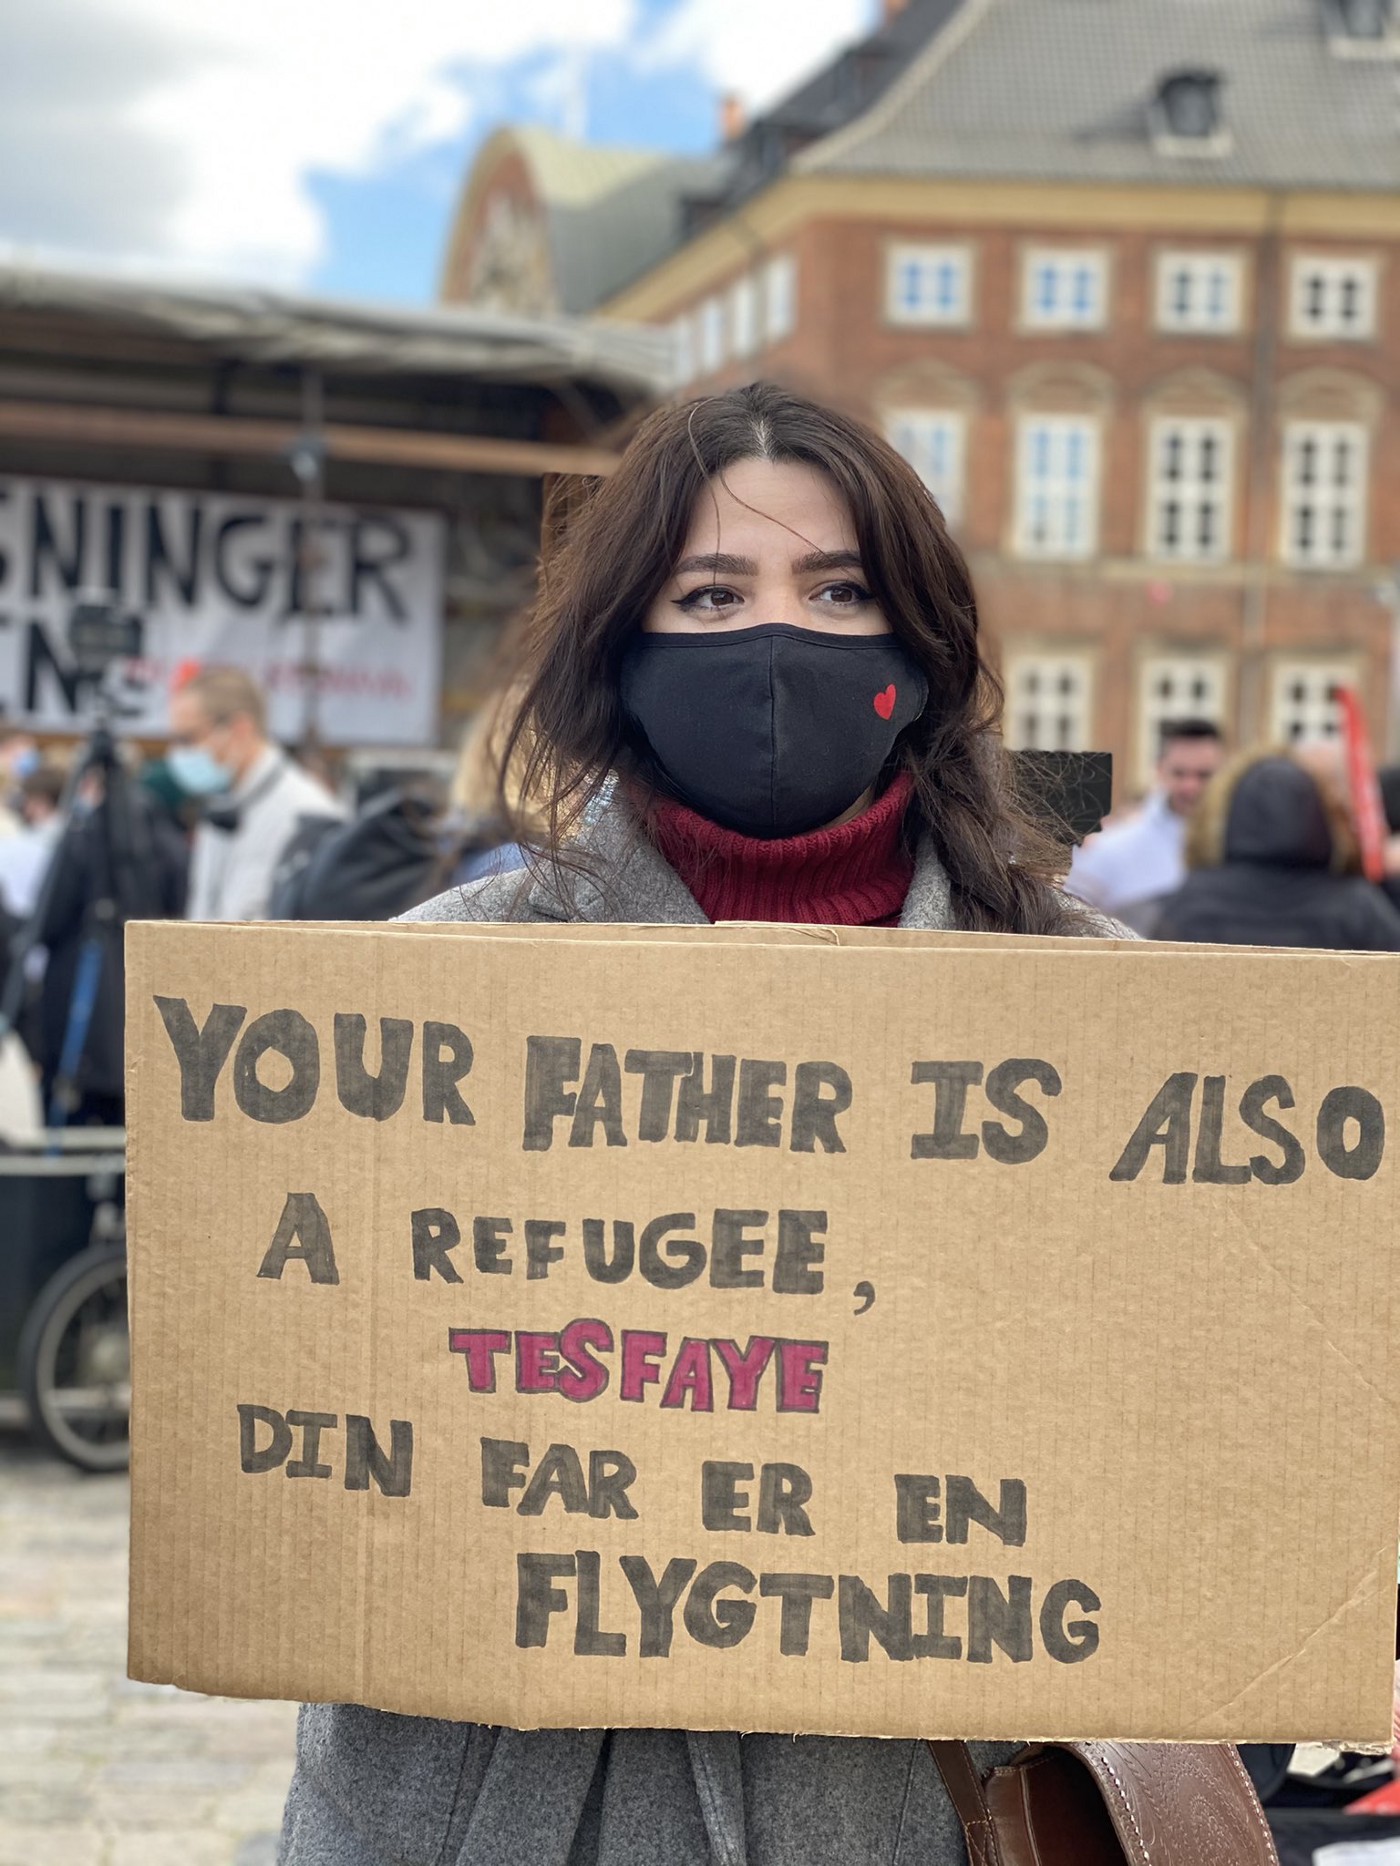 SNINGER
YOUR FATHER IS ALSO
A REFUGEE,
TESFAYE
DIN FAR ER EN
FLYGTNING